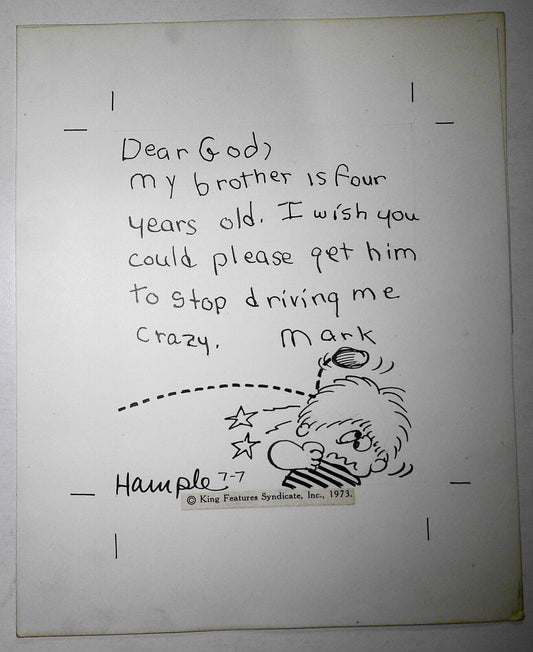 Dear God,
my brother is four
years old. I wish you
could please get him
to stop driving me
crazy. Mark
Hample 7-7
© King Features Syndicate, Inc., 1973.